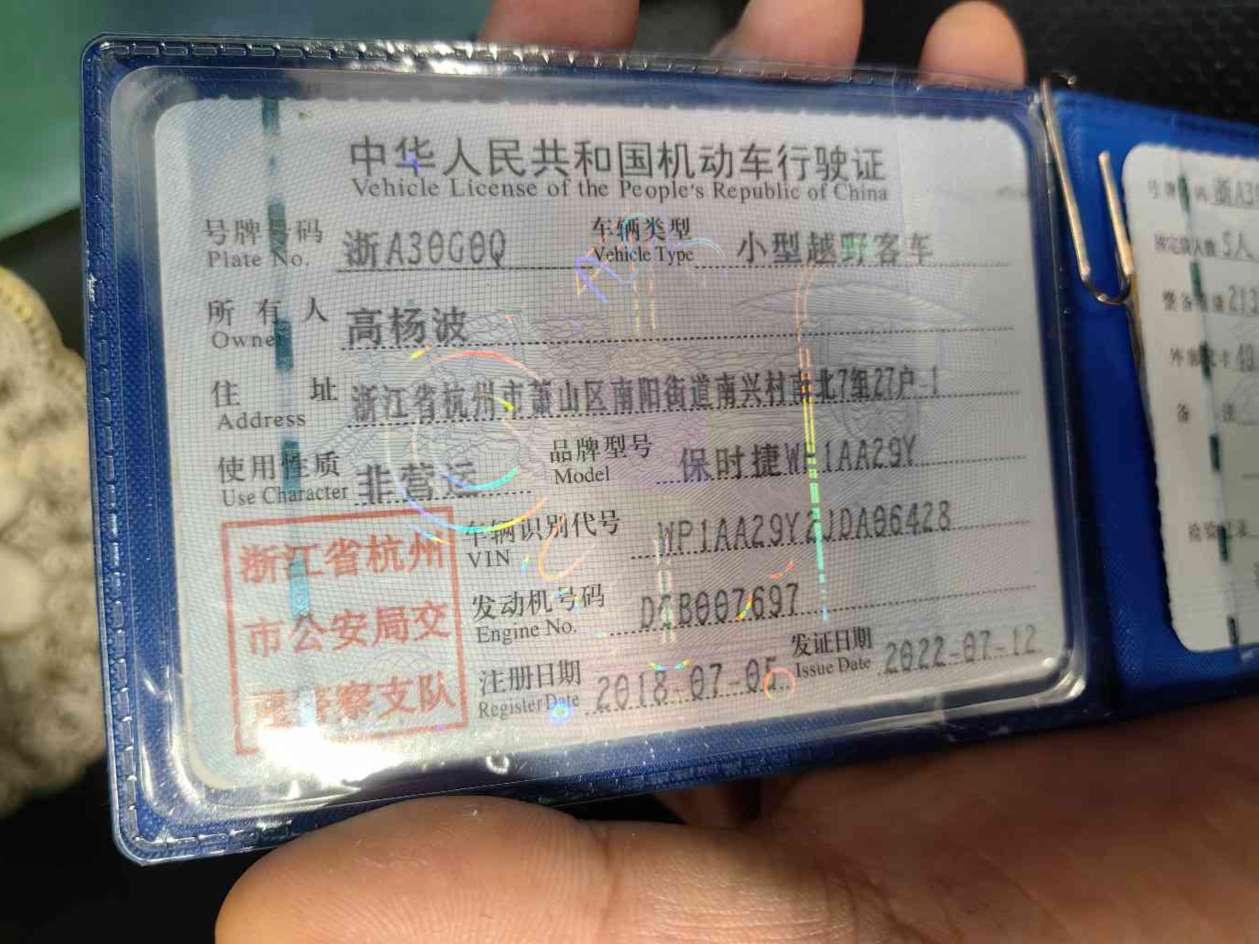 中华人民共和国机动车行驶证
Vehicle License of the People's Republic of China
号牌号码 浙A30G0Q 车辆类型 小型越野客车
Plate No. Vehicle Type
所有人 高杨波
Owner
住址 浙江省杭州市萧山区南阳街道南兴村南北7组27户-1
Address
使用性质 非营运 品牌型号 保时捷WP1AA29Y
Use Character Model
车辆识别代号 WP1AA29Y2JDA06428
VIN
发动机号码 DCB007697
Engine No.
注册日期 2018-07-05 发证日期 2022-07-12
Register Date Issue Date
浙江省杭州
市公安局交
通警察支队
5人
备 注